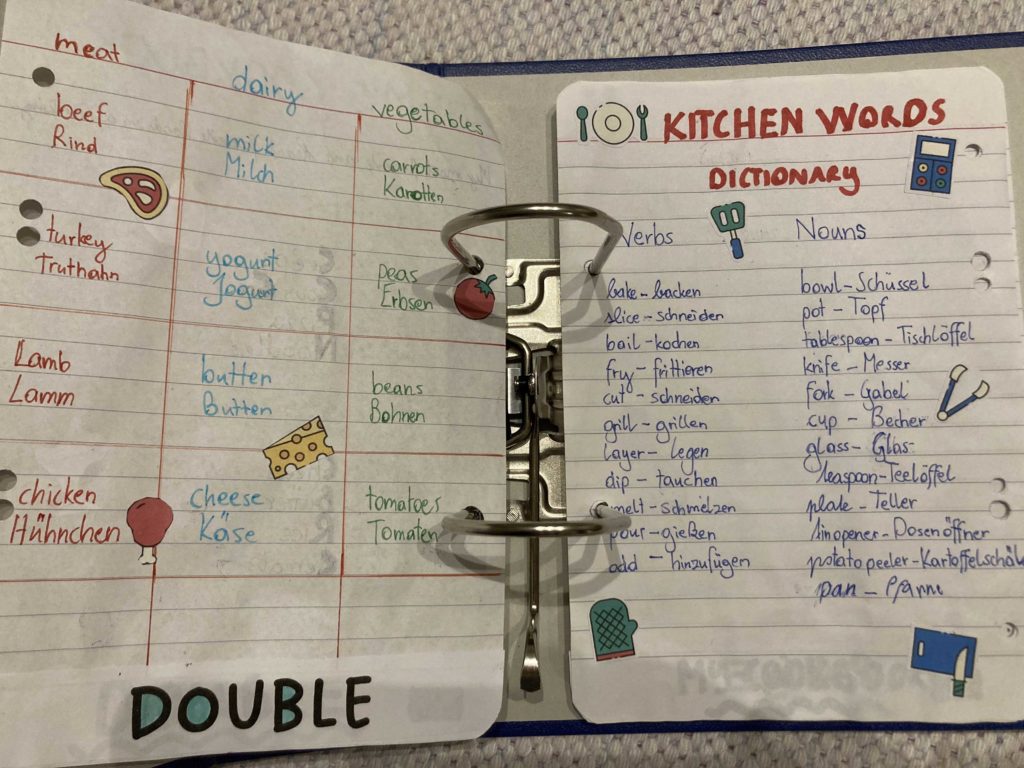 meat
beef
Rind
turkey
Truthahn
Lamb
Lamm
chicken
Hühnchen
dairy
milk
Milch
yogurt
Jogurt
butter
Butter
cheese
Käse
vegetables
carrots
Karotten
peas
Erbsen
beans
Bohnen
tomatoes
Tomaten
DOUBLE
KITCHEN WORDS
DICTIONARY
Verbs
bake – backen
slice – schneiden
boil – kochen
fry – frittieren
cut – schneiden
grill – grillen
layer – legen
dip – tauchen
melt – schmelzen
pour – gießen
add – hinzufügen
Nouns
bowl – Schüssel
pot – Topf
tablespoon – Tischlöffel
knife – Messer
fork – Gabel
cup – Becher
glass – Glas
teaspoon – Teelöffel
plate – Teller
tinopener – Dosenöffner
potato peeler – Kartoffelschäl
pan – Pfanne